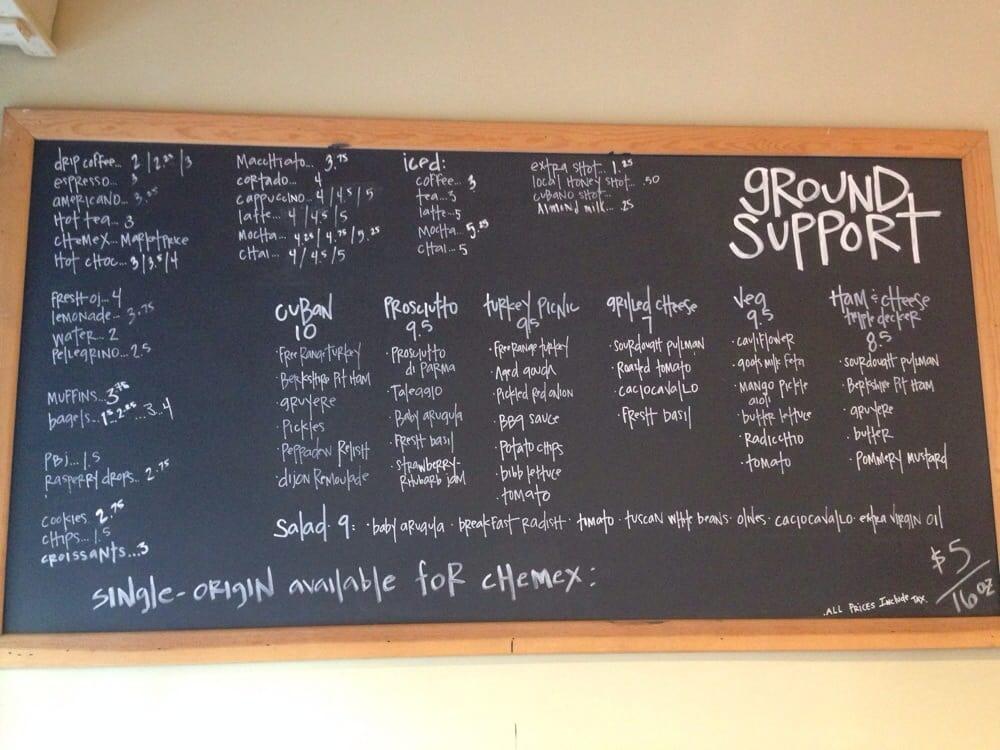 GROUND
SUPPORT
drip coffee... 2 / 2.25 / 3
espresso... 3
americano... 3.25
Hot tea... 3
CHEMEX... Market Price
Hot CHOC... 3/3.5/4
Macchiato... 3.75
cortado... 4
cappuccino... 4/4.5/5
latte... 4/4.5/5
Mocha... 4.25/4.75/5.25
CHai... 4/4.5/5
iced:
coffee... 3
tea... 3
latte... 5
Mocha... 5.25
CHai... 5
extra shot... 1.25
local Honey shot... .50
cubano shot...
Almond milk... .25
Fresh oj... 4
lemonade... 3.75
water... 2
Pellegrino... 2.5
MUFFINS... 3.75
bagels...
PBj... 1.5
Raspberry drops... 2.75
cookies. 2.75
CHips... 1.5
croissants... 3
CUBAN
10
· Free Range turkey
· Berkshire Pit Ham
· gruyere
· Pickles
· Peppadew Relish
· dijon Remoulade
PROSCIUTTO
9.5
· Prosciutto
di Parma
· Taleggio
· Baby arugula
· Fresh basil
· strawberry-
Rhubarb jam
turkey PICNIC
9.5
· Free Range turkey
· Aged gouda
· Pickled red onion
· BBQ sauce
· Potato chips
· bibb lettuce
· tomato
grilled cheese
7
· sourdough pullman
· Roasted tomato
· caciocavallo
· fresh basil
Veg
9.5
· cauliflower
· goats milk feta
· Mango Pickle
aioli
· butter lettuce
· Radicchio
· tomato
Ham & cheese
triple decker
8.5
· sourdough pullman
· Berkshire Pit Ham
· gruyere
· butter
· Pommery mustard
Salad 9: · baby arugula · breakfast Radish · tomato · tuscan white beans · olives · caciocavallo · extra virgin oil
SINGLE-ORIGIN available for CHEMEX:
$5/16oz
.ALL PRICES Include TAX.